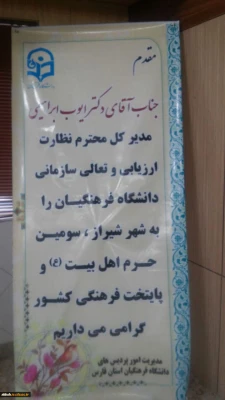 مقدم
جناب آقای دکتر ایوب ابراهیمی
مدیر کل محترم نظارت
ارزیابی و تعالی سازمانی
دانشگاه فرهنگیان را
به شهر شیراز ، سومین
حرم اهل بیت (ع) و
پایتخت فرهنگی کشور
گرامی می داریم
مدیریت امور پردیس های
دانشگاه فرهنگیان استان فارس